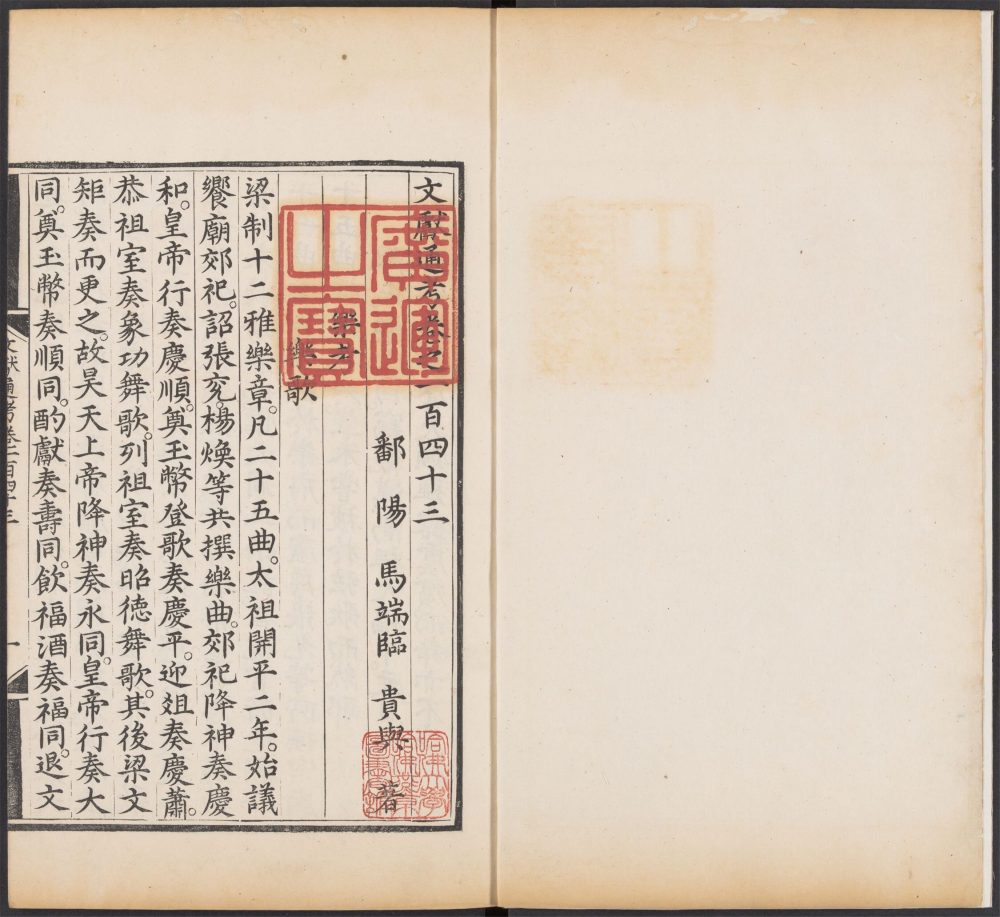 文獻通考卷之一百四十三
鄱陽馬端臨貴與著
樂考
樂歌
梁制十二雅樂章。凡二十五曲。太祖開平二年。始議
饗廟郊祀。詔張兖。楊煥等共撰樂曲。郊祀降神奏慶
和。皇帝行奏慶順。奠玉幣登歌奏慶平。迎俎奏慶肅。
恭祖室奏象功舞歌。列祖室奏昭徳舞歌。其後梁文
矩奏而更之。故昊天上帝降神奏永同。皇帝行奏大
同。奠玉幣奏順同。酌獻奏壽同。飲福酒奏福同。退文
文獻通考卷一百四十三
一
廣運之寶